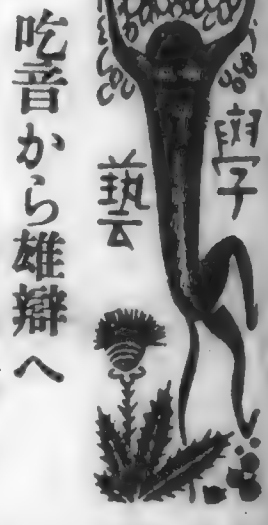 學藝
吃音から雄辯へ